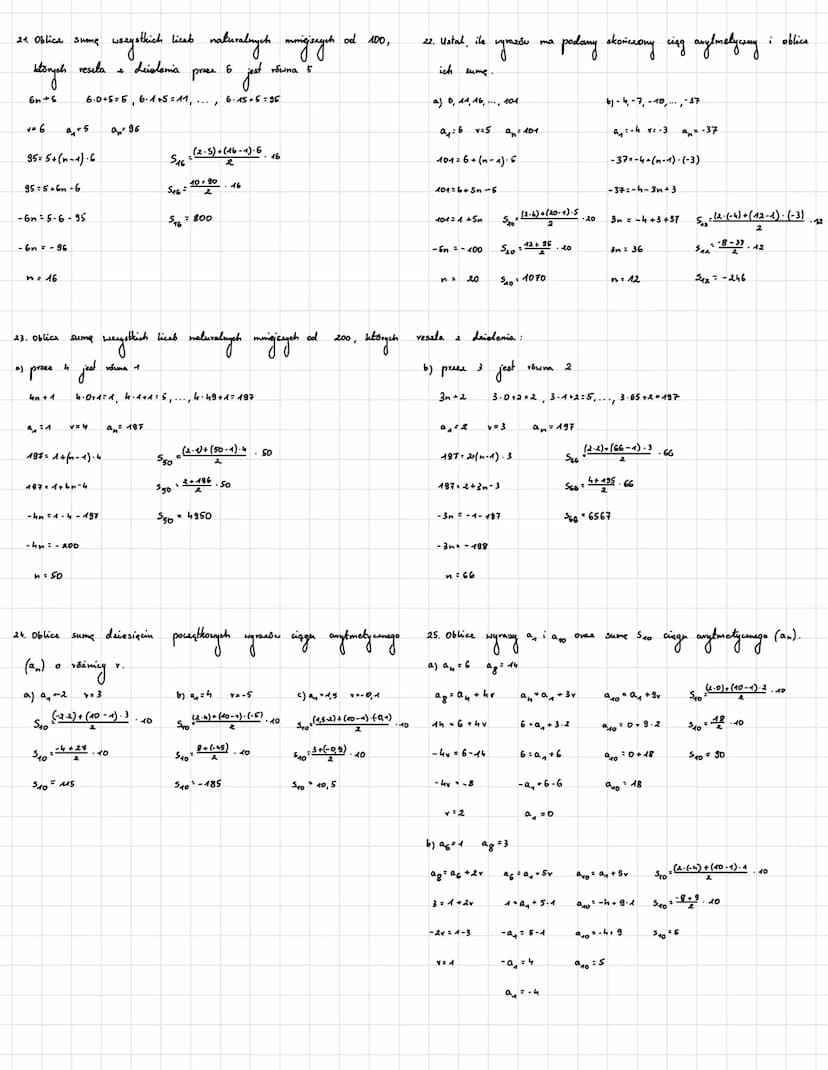 21. Oblicz sumę wszystkich liczb naturalnych mniejszych od 100,
których reszta z dzielenia przez 6 jest równa 5
6n+5 6·0+5=5, 6·1+5=11, ..., 6·15+5=95
r=6 a₁=5 aₙ=95
95=5+(n-1)·6 S₁₆=((2·5)+(16-1)·6)/2 · 16
95=5+6n-6 S₁₆=(10+90)/2 · 16
-6n=5-6-95 S₁₆=800
-6n=-96
n=16
22. Ustal, ile wyrazów ma podany skończony ciąg arytmetyczny i oblicz
ich sumę.
a) 6, 11, 16, ..., 101 b) -4, -7, -10, ..., -37
a₁=6 r=5 aₙ=101 a₁=-4 r=-3 aₙ=-37
101=6+(n-1)·5 -37=-4+(n-1)·(-3)
101=6+5n-5 -37=-4-3n+3
101=1+5n S₂₀=((2·6)+(20-1)·5)/2 · 20 3n=-4+3+37 S₁₂=(2·(-4)+(12-1)·(-3))/2 · 12
-5n=-100 S₂₀=(12+95)/2 · 20 3n=36 S₁₂=(-8-33)/2 · 12
n=20 S₂₀=1070 n=12 S₁₂=-246
23. Oblicz sumę wszystkich liczb naturalnych mniejszych od 200, których reszta z dzielenia:
a) przez 4 jest równa 1
4n+1 4·0+1=1, 4·1+1=5, ..., 4·49+1=197
a₁=1 r=4 aₙ=197
197=1+(n-1)·4 S₅₀=((2·1)+(50-1)·4)/2 · 50
197=1+4n-4 S₅₀=(2+196)/2 · 50
-4n=1-4-197 S₅₀=4950
-4n=-200
n=50
b) przez 3 jest równa 2
3n+2 3·0+2=2, 3·1+2=5, ..., 3·65+2=197
a₁=2 r=3 aₙ=197
197=2+(n-1)·3 S₆₆=((2·2)+(66-1)·3)/2 · 66
197=2+3n-3 S₆₆=(4+195)/2 · 66
-3n=-1-197 S₆₆=6567
-3n=-198
n=66
24. Oblicz sumę dziesięciu początkowych wyrazów ciągu arytmetycznego
(aₙ) o różnicy r.
a) a₁=-2 r=3 b) a₁=4 r=-5 c) a₁=1,5 r=-0,1
S₁₀=((-2·2)+(10-1)·3)/2 · 10 S₁₀=((2·4)+(10-1)·(-5))/2 · 10 S₁₀=((1,5·2)+(10-1)·(-0,1))/2 · 10
S₁₀=(-4+27)/2 · 10 S₁₀=(8+(-45))/2 · 10 S₁₀=(3+(-0,9))/2 · 10
S₁₀=115 S₁₀=-185 S₁₀=10,5
25. Oblicz wyrazy a₁ i a₁₀ oraz sumę S₁₀ ciągu arytmetycznego (aₙ).
a) a₄=6 a₈=14
a₈=a₄+4r a₄=a₁+3r a₁₀=a₁+9r S₁₀=((2·0)+(10-1)·2)/2 · 10
14=6+4r 6=a₁+3·2 a₁₀=0+9·2 S₁₀=18/2 · 10
-4r=6-14 6=a₁+6 a₁₀=0+18 S₁₀=90
-4r=-8 -a₁=6-6 a₁₀=18
r=2 a₁=0
b) a₆=1 a₈=3
a₈=a₆+2r a₆=a₁+5r a₁₀=a₁+9r S₁₀=((2·(-4)+(10-1)·1)/2 · 10
3=1+2r 1=a₁+5·1 a₁₀=-4+9·1 S₁₀=(-8+9)/2 · 10
-2r=1-3 -a₁=5-1 a₁₀=-4+9 S₁₀=5
r=1 -a₁=4 a₁₀=5
a₁=-4